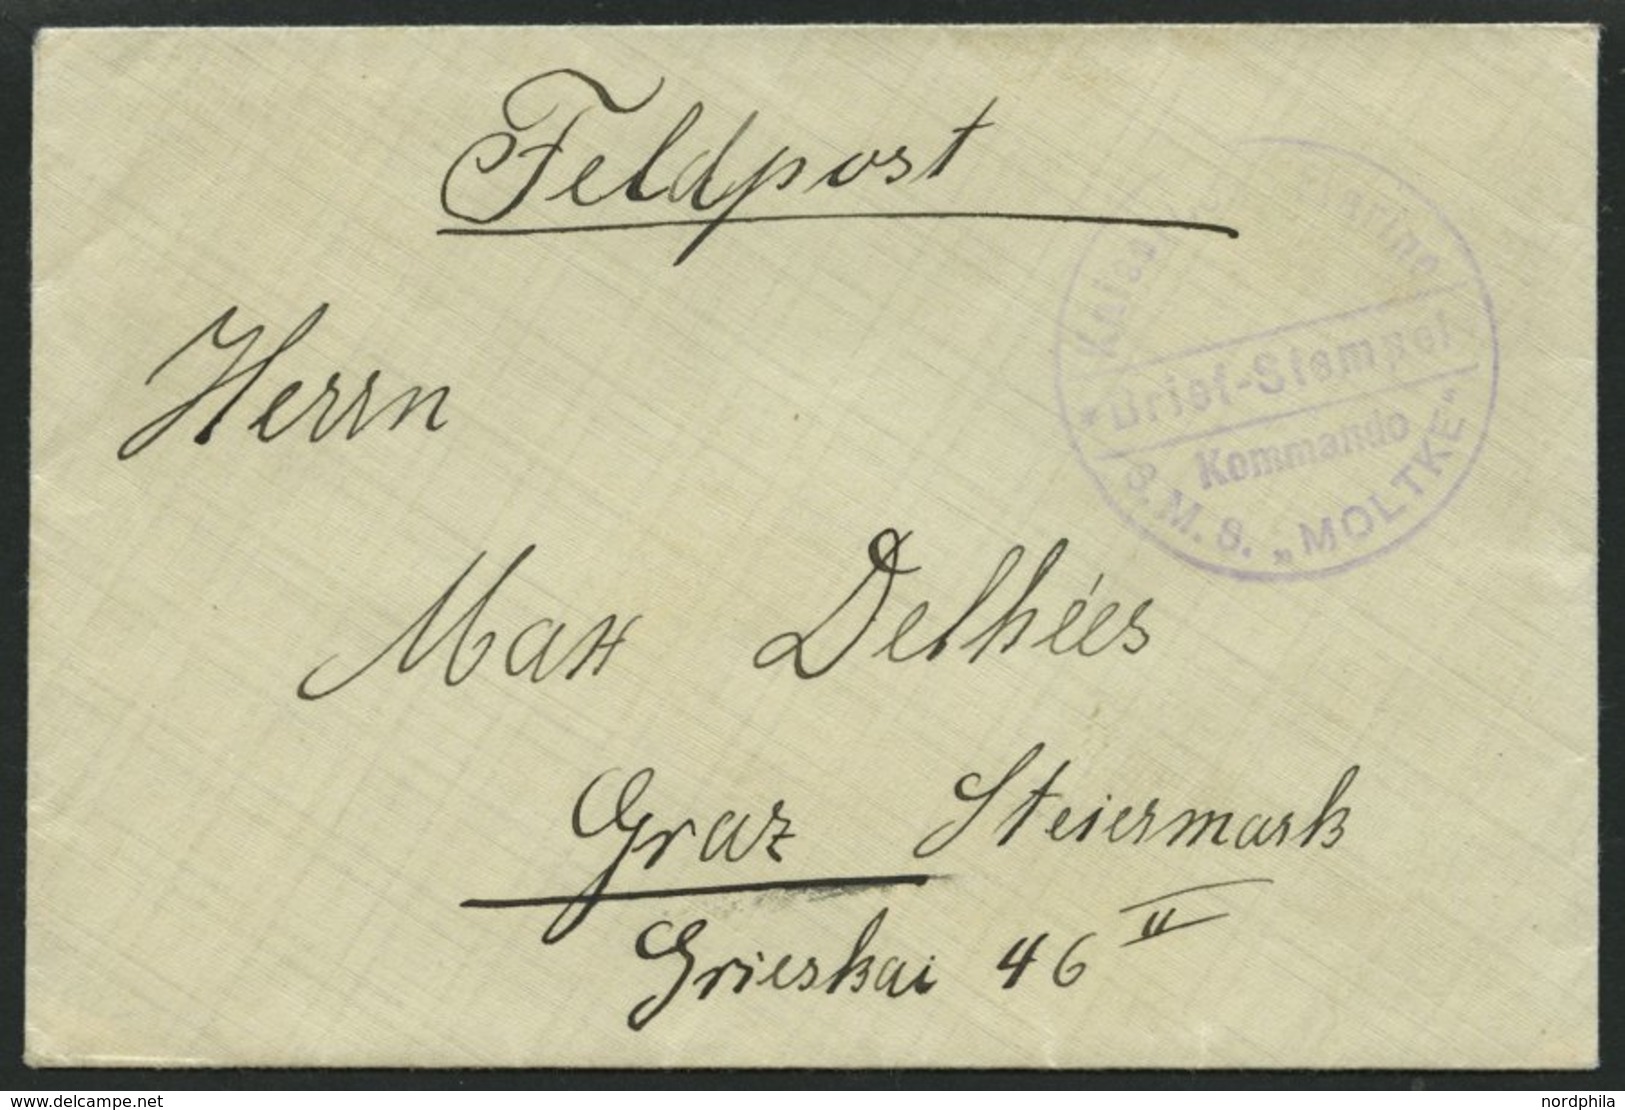 Feldpost
Kaiserliche Marine
*Brief-Stempel*
Kommando
S.M.S. „MOLTKE“
Herrn
Max Delhées
Graz Steiermark
Grieskai 46 II
www.delcampe.net
nordphila